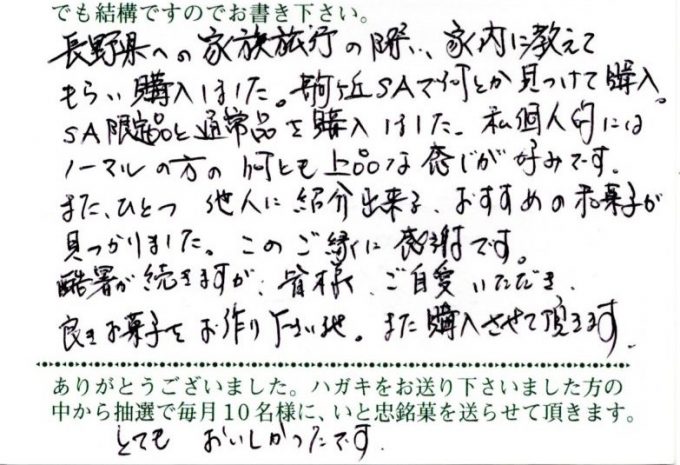 でも結構ですのでお書き下さい。
長野県への家族旅行の際、家内に教えて
もらい購入しました。駒ヶ岳SAで何とか見つけて購入。
SA限定品と通常品を購入しました。私個人的には
ノーマルの方の何とも上品な感じが好みです。
また、ひとつ 他人に紹介出来る、おすすめの和菓子が
見つかりました。このご縁に感謝です。
酷暑が続きますが、皆様、ご自愛いただき、
良きお菓子をお作り下さい。また購入させて頂きます。
ありがとうございました。ハガキをお送り下さいました方の
中から抽選で毎月10名様に、いと忠銘菓を送らせて頂きます。
とても おいしかったです。